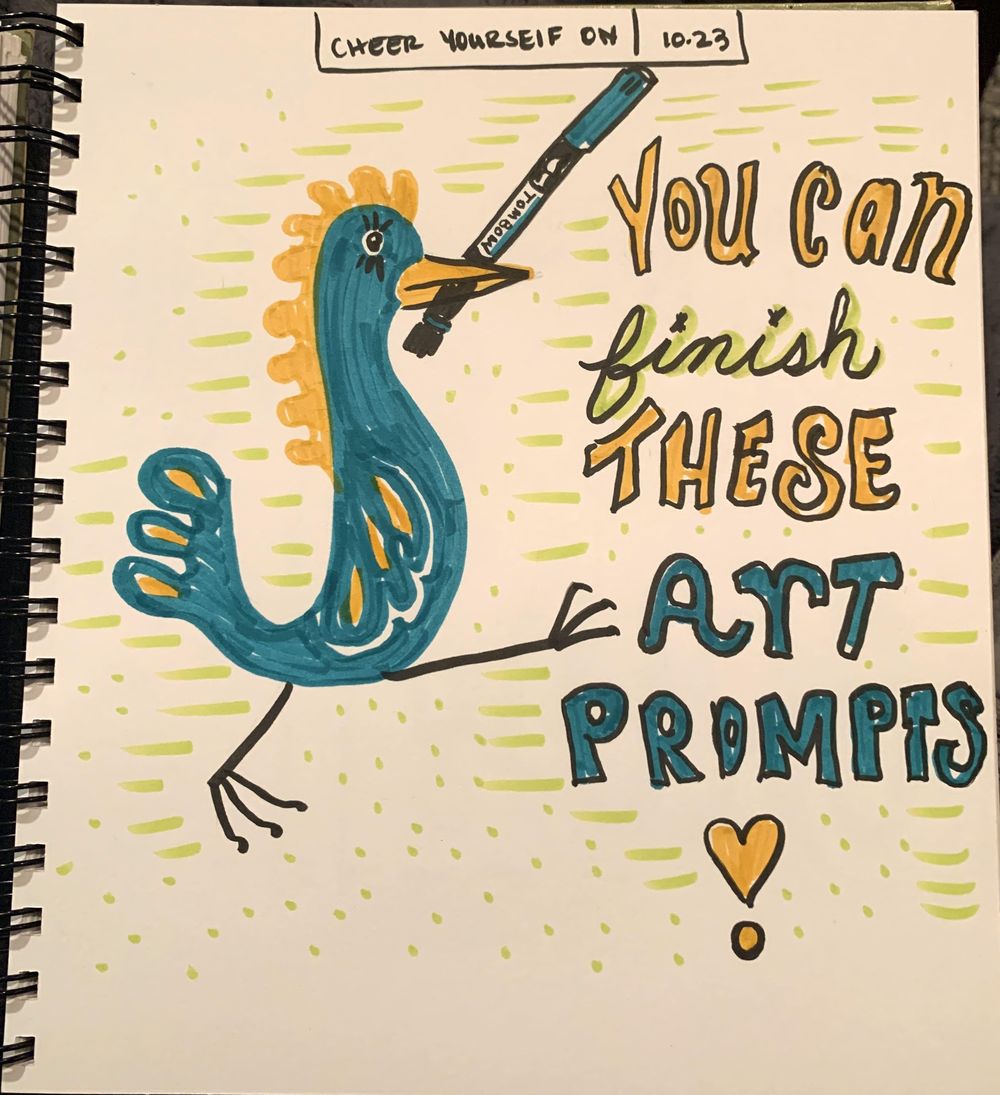 CHEER YOURSELF ON | 10.23
TOMBOW
YOU Can
finish
THESE
ArT
PROMPTS
!